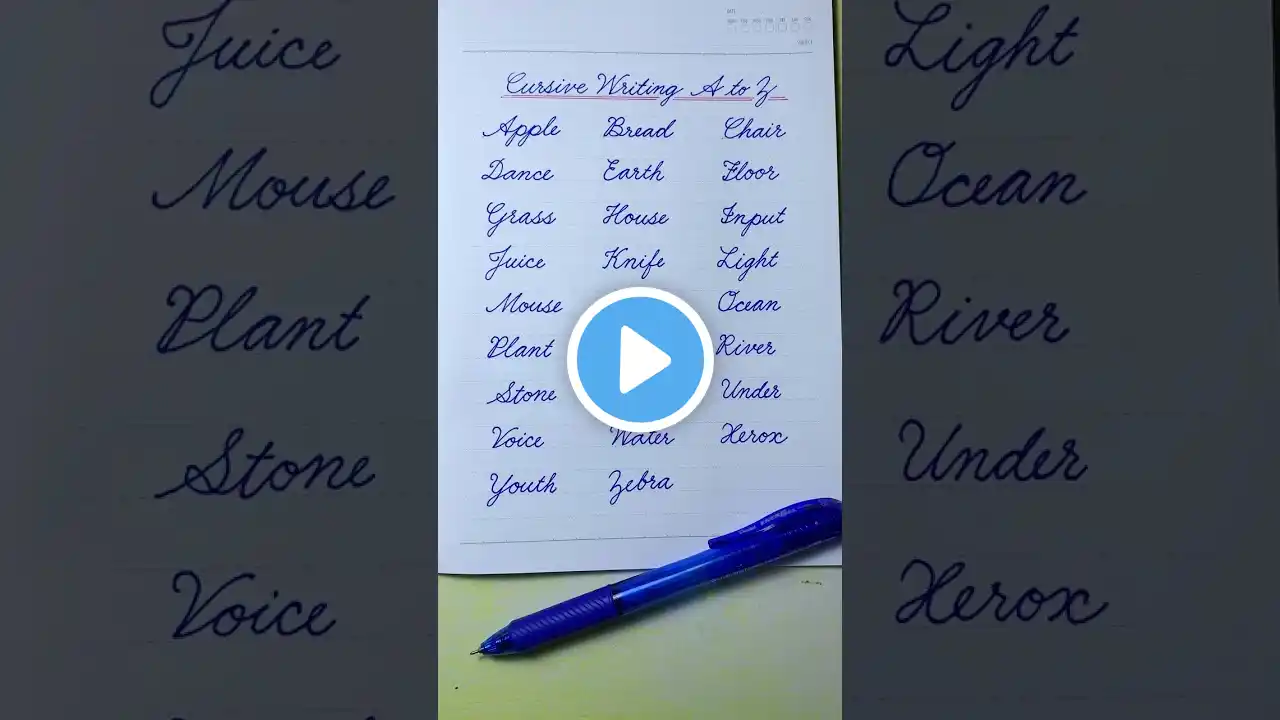 Cursive Writing A to Z
Apple Bread Chair
Dance Earth Floor
Grass House Input
Juice Knife Light
Mouse Ocean
Plant River
Stone Under
Voice Water Xerox
Youth Zebra
Juice
Mouse
Plant
Stone
Voice
Light
Ocean
River
Under
Xerox